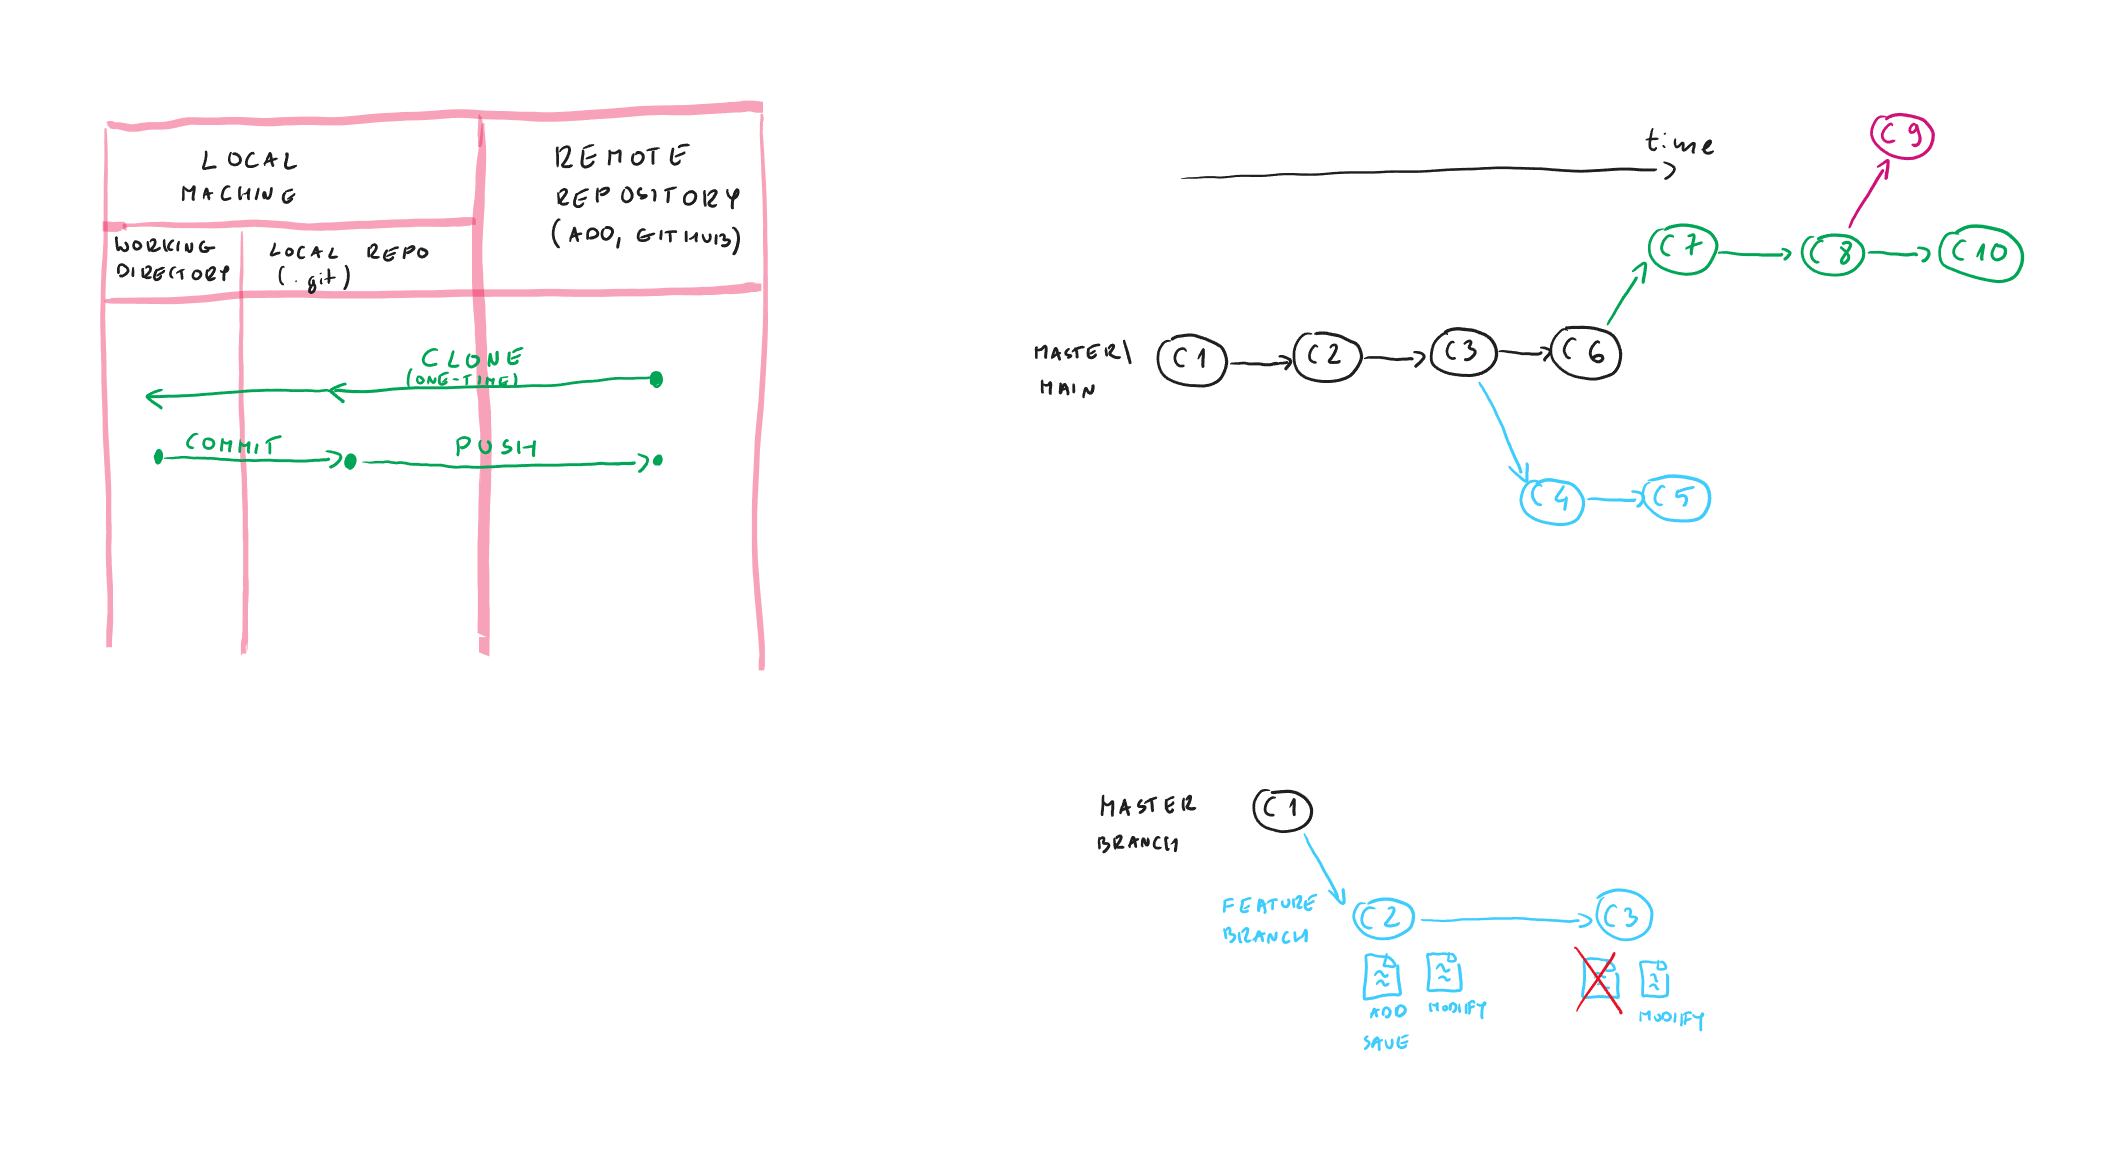 LOCAL
MACHINE
REMOTE
REPOSITORY
(ADO, GITHUB)
WORKING
DIRECTORY
LOCAL REPO
(.git)
CLONE
(ONE-TIME)
COMMIT
PUSH
time
C9
C7
C8
C10
MASTER\
MAIN
C1
C2
C3
C6
C4
C5
MASTER
BRANCH
C1
FEATURE
BRANCH
C2
C3
ADD
SAVE
MODIFY
MODIFY